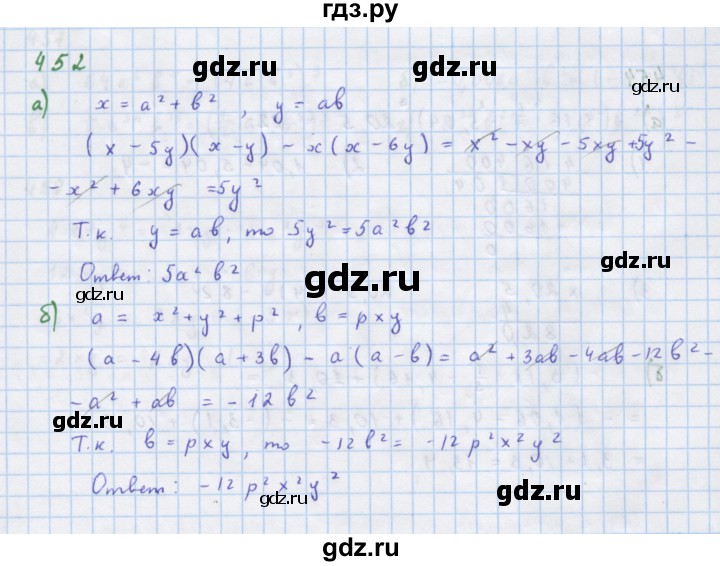 гдз.ру
452
gdz.ru gdz.ru
а) x = a² + b², y = ab
(x - 5y)(x - y) - x(x - 6y) = x² - xy - 5xy + 5y² -
- x² + 6xy = 5y²
gdz.ru gdz.ru
Т.к. y = ab, то 5y² = 5a²b²
Ответ: 5a²b²
gdz.ru gdz.ru gdz.ru
б) a = x² + y² + p², b = pxy
(a - 4b)(a + 3b) - a(a - b) = a² + 3ab - 4ab - 12b² -
- a² + ab = -12b²
gdz.ru gdz.ru
Т.к. b = pxy, то -12b² = -12p²x²y²
Ответ: -12p²x²y²
gdz.ru gdz.ru
gdz.ru